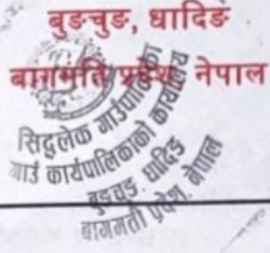 बुङचुङ, धादिङ
बागमति प्रदेश, नेपाल
सिद्धलेक गाउँपालिका
गाउँ कार्यपालिकाको कार्यालय
बुङचुङ, धादिङ
बागमती प्रदेश, नेपाल